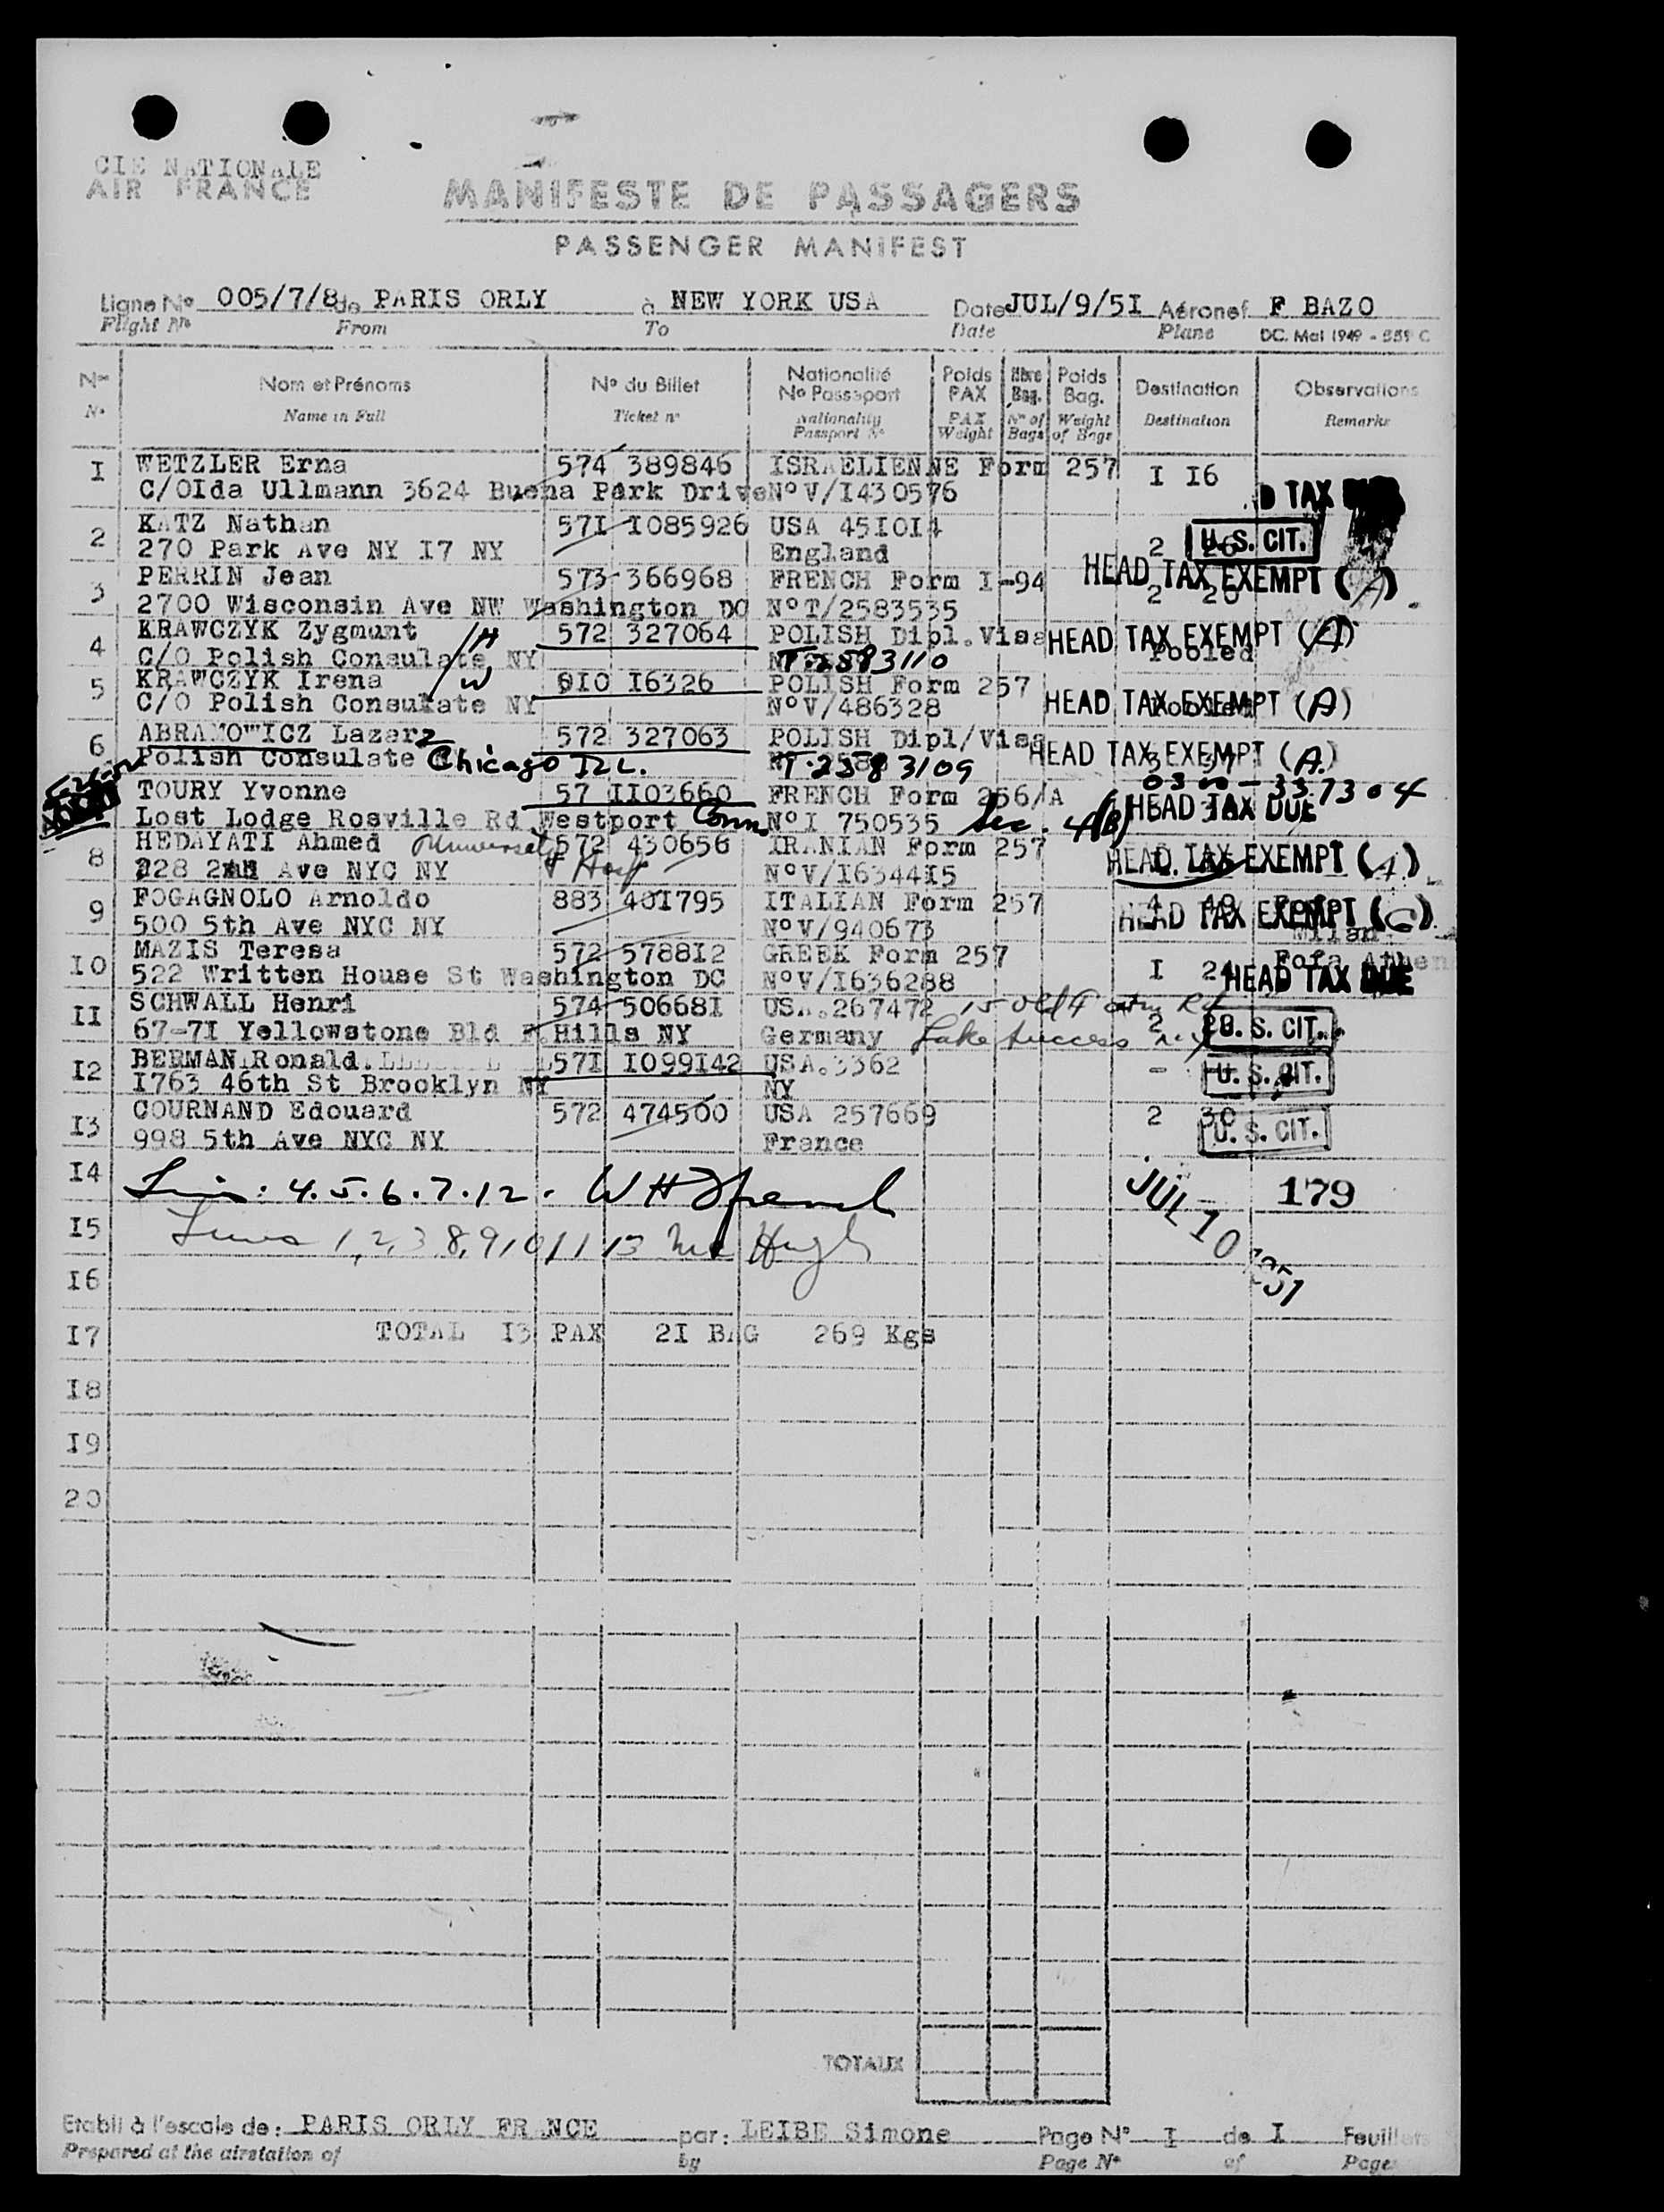 CIE NATIONALE
AIR FRANCE
MANIFESTE DE PASSAGERS
PASSENGER MANIFEST
Ligne No 005/7/8 de PARIS ORLY à NEW YORK USA Date JUL/9/5I Aéronef F BAZO
Flight No From To Date Plane DC. Mai 1949 - 559 C
Nos Nom et Prénoms No du Billet Nationalité No Passeport Poids PAX Nbre Bag. Poids Bag. Destination Observations
No Name in Full Ticket no Nationality Passport No PAX Weight No of Bags Weight of Bags Destination Remarks
I WETZLER Erna 574 389846 ISRAELIENNE Form 257 I I6
C/OIda Ullmann 3624 Buena Park Drive No V/I430576 D TAX
2 KATZ Nathan 57I I085926 USA 45I0I4
270 Park Ave NY I7 NY England 2 26 U. S. CIT.
3 PERRIN Jean 573 366968 FRENCH Form I-94 HEAD TAX EXEMPT (A)
2700 Wisconsin Ave NW Washington DC No T/2583535 2 20
4 KRAWCZYK Zygmunt H 572 327064 POLISH Dipl.Visa HEAD TAX EXEMPT (A)
C/O Polish Consulate NY T-2583110 Pooled
5 KRAWCZYK Irena W 0I0 I6326 POLISH Form 257
C/O Polish Consulate NY No V/486328 HEAD TAX EXEMPT (A)
6 ABRAMOWICZ Lazarz 572 327063 POLISH Dipl/Visa HEAD TAX EXEMPT (A.)
Polish Consulate Chicago ILL. T-2583109
0300-337304
TOURY Yvonne 57 II03660 FRENCH Form 256/A HEAD TAX DUE
Lost Lodge Rosville Rd Westport Conn No I 750535 Sec. 4(B)
8 HEDAYATI Ahmed 572 430656 IRANIAN Form 257 HEAD TAX EXEMPT (A)
228 2nd Ave NYC NY No V/I6344I5
9 FOGAGNOLO Arnoldo 883 40I795 ITALIAN Form 257 4 49 HEAD TAX EXEMPT (G)
500 5th Ave NYC NY No V/940673 Milan
I0 MAZIS Teresa 572 5788I2 GREEK Form 257 Athen
522 Written House St Washington DC No V/I636288 I 24 HEAD TAX DUE
II SCHWALL Henri 574 50668I US.267472 15 Old Rd
67-7I Yellowstone Bld F.Hills NY Germany Lake Success N.Y 2 28 U. S. CIT.
I2 BERMAN Ronald 57I I099I42 USA.3362
I763 46th St Brooklyn NY NY - U. S. CIT.
I3 COURNAND Edouard 572 474500 USA 257669 2 30
998 5th Ave NYC NY France U. S. CIT.
I4 4.5.6.7.12. JUL 10 1951 179
I5 Lines 1,2,3 8,9,10,11 13
I6
I7 TOTAL I3 PAX 2I BAG 269 Kgs
I8
I9
20
TOTAUX
Etabli à l'escale de: PARIS ORLY FRANCE par: LEIBE Simone Page No I de I Feuillets
Prepared at the airstation of by Page No of Pages